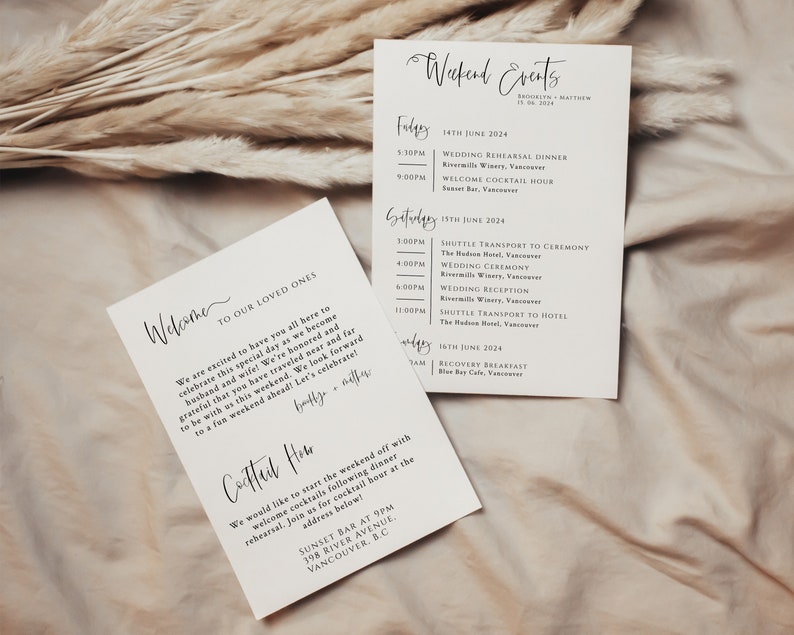 Weekend Events
Brooklyn + Matthew
15. 06. 2024
Friday 14th June 2024
5:30PM Wedding Rehearsal Dinner
Rivermills Winery, Vancouver
9:00PM Welcome Cocktail Hour
Sunset Bar, Vancouver
Saturday 15th June 2024
3:00PM Shuttle Transport to Ceremony
The Hudson Hotel, Vancouver
4:00PM Wedding Ceremony
Rivermills Winery, Vancouver
6:00PM Wedding Reception
Rivermills Winery, Vancouver
11:00PM Shuttle Transport to Hotel
The Hudson Hotel, Vancouver
16th June 2024
Recovery Breakfast
Blue Bay Cafe, Vancouver
Welcome to our loved ones
We are excited to have you all here to
celebrate this special day as we become
husband and wife! We're honored and
grateful that you have traveled near and far
to be with us this weekend. We look forward
to a fun weekend ahead! Let's celebrate!
brooklyn + matthew
Cocktail Hour
We would like to start the weekend off with
welcome cocktails following dinner
rehearsal. Join us for cocktail hour at the
address below!
Sunset Bar at 9PM
398 River Avenue,
Vancouver, B.C